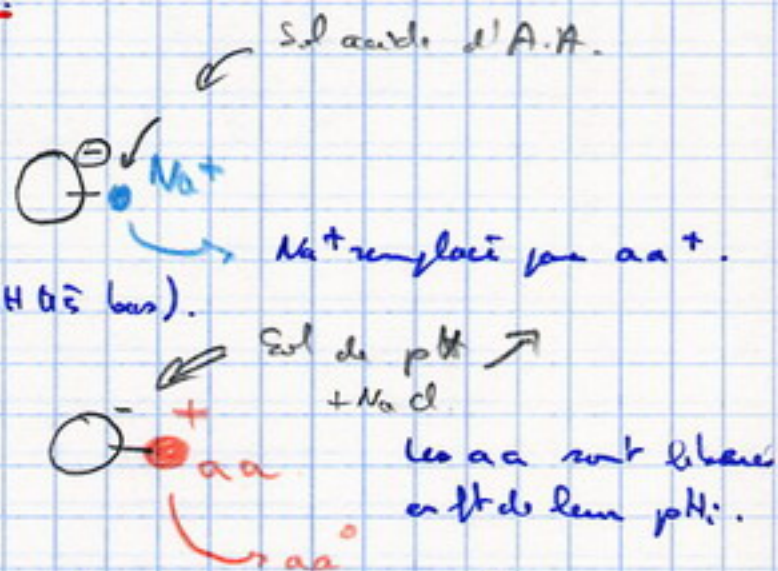 Sol acide d'A.A.
⊖
Na+
Na+ remplacé par aa+.
H très bas).
Sol de pH ↗
+ NaCl
-
+
aa
les aa sont libérés
en ft de leur pHi.
aa°